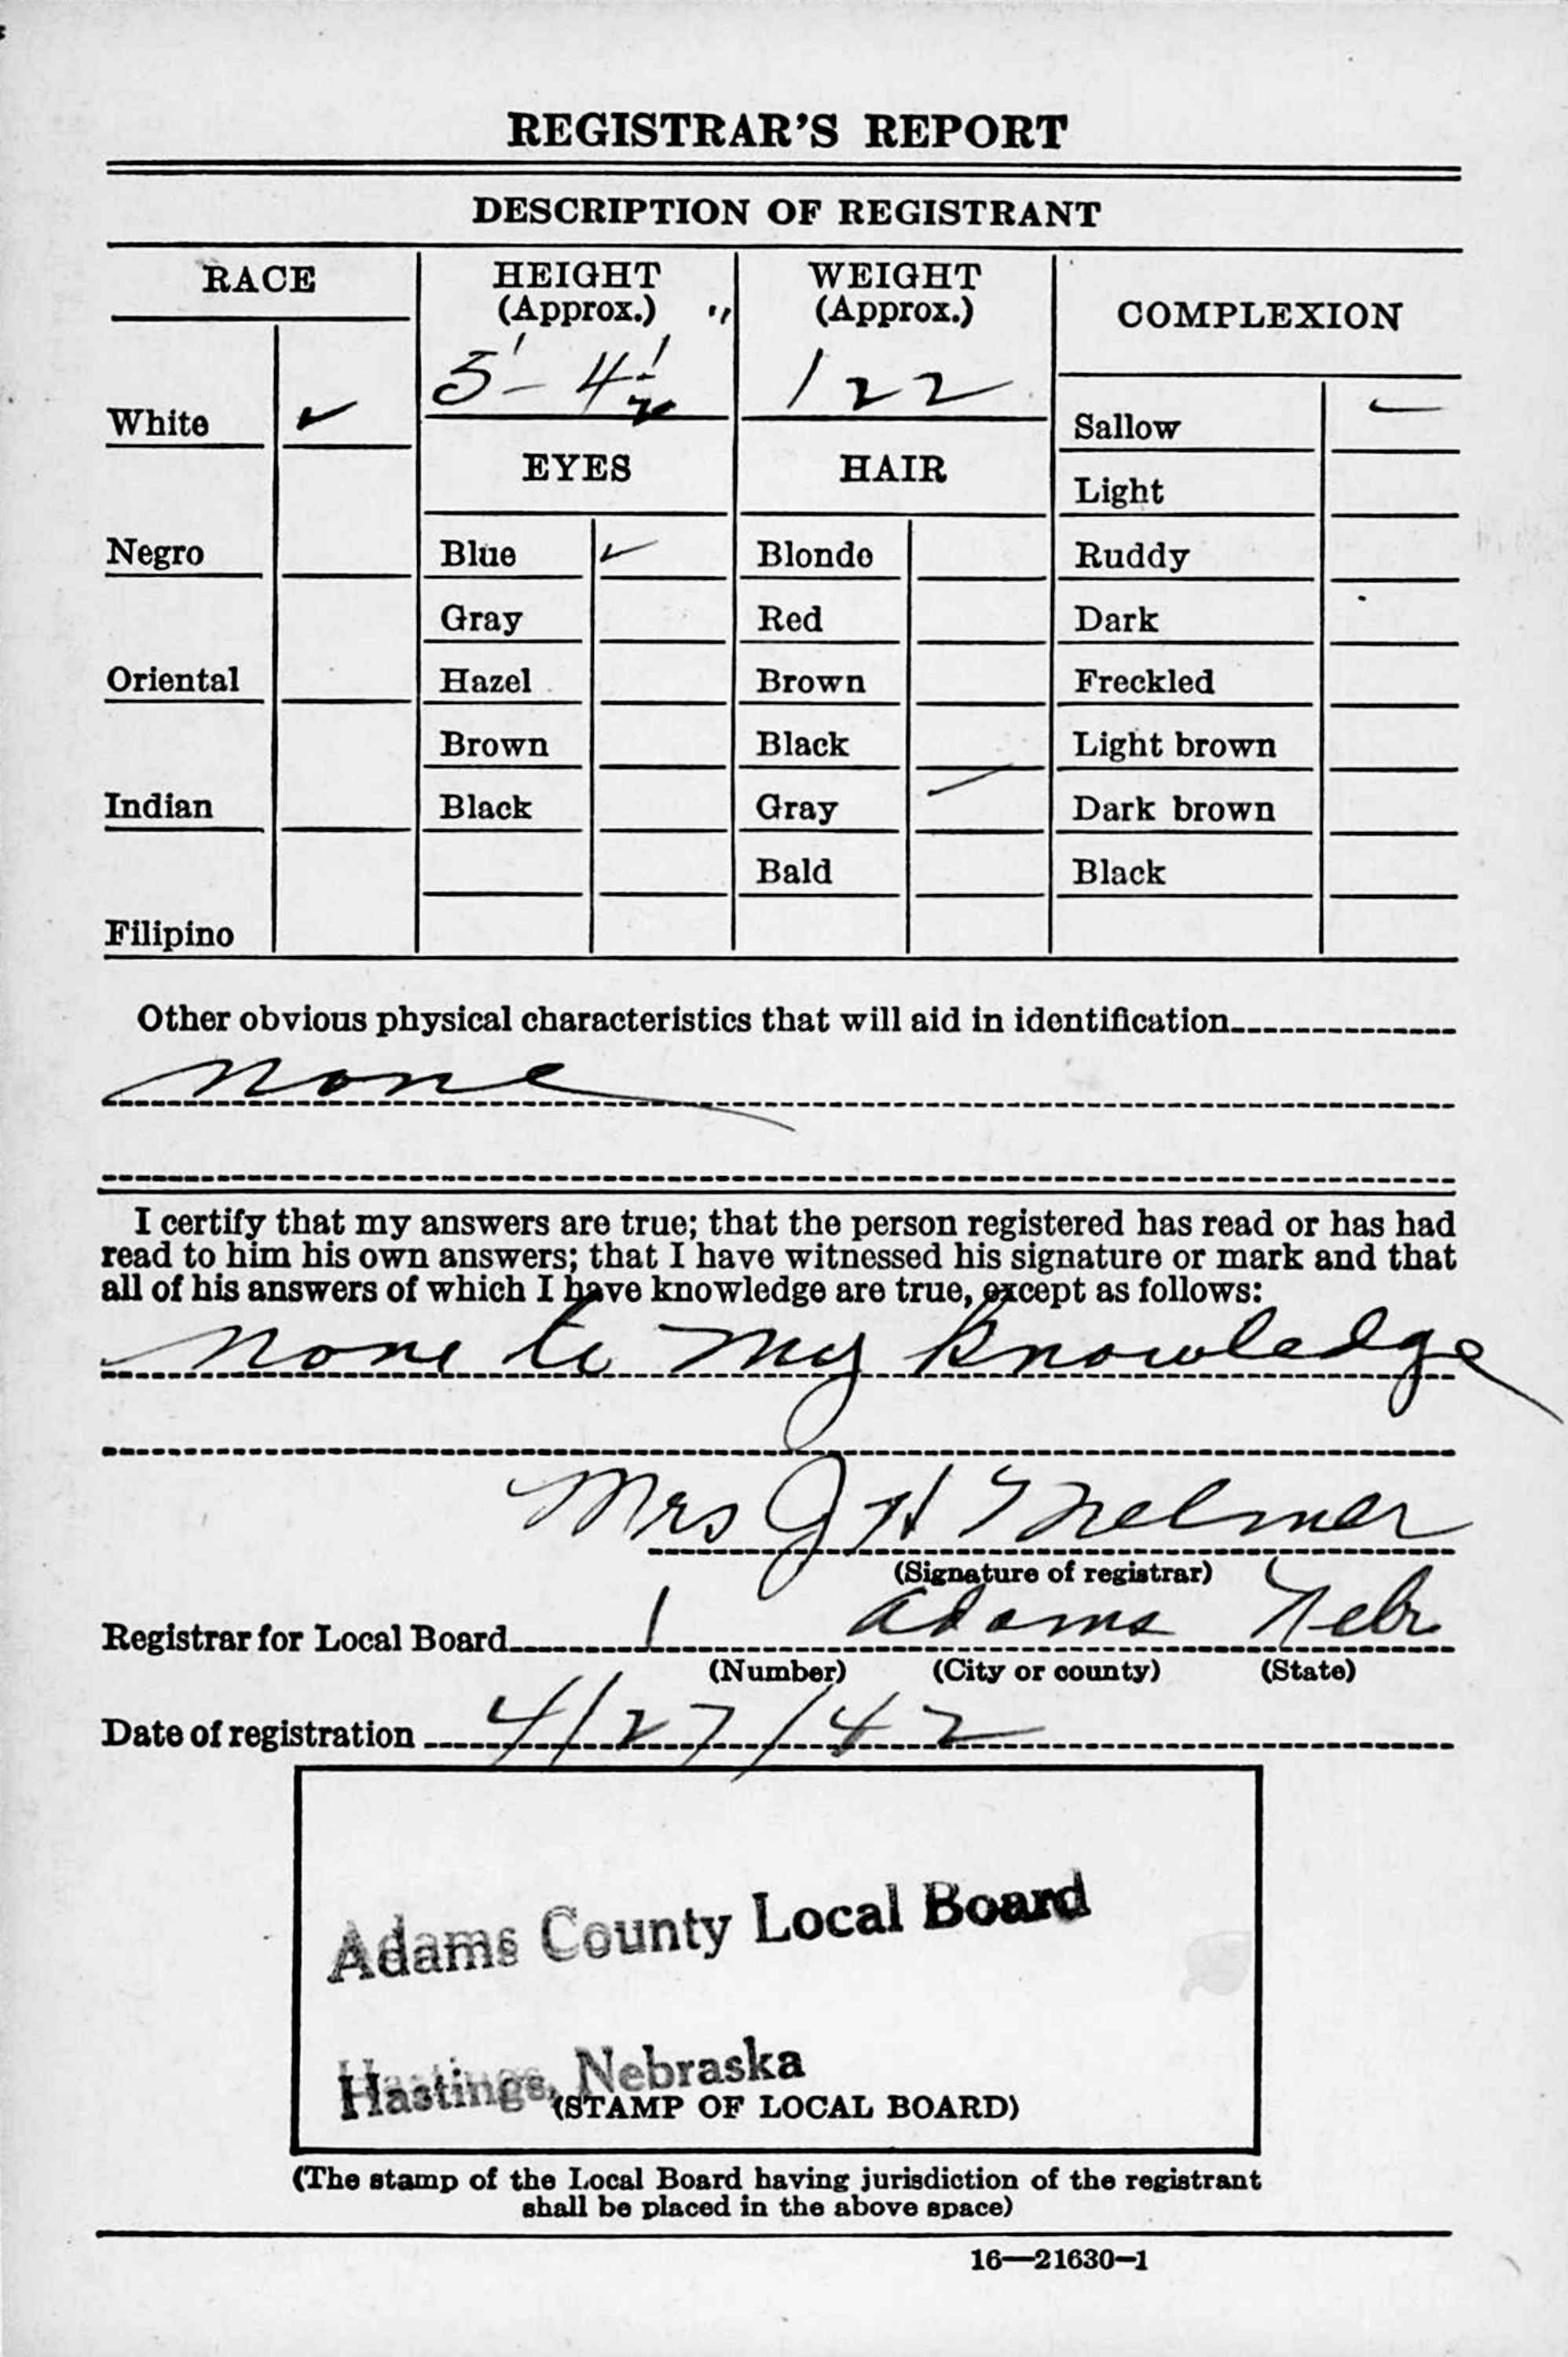 REGISTRAR'S REPORT
DESCRIPTION OF REGISTRANT
RACE
HEIGHT
(Approx.)
WEIGHT
(Approx.)
COMPLEXION
5' - 4 1/2 "
122
White ✓
Sallow ✓
EYES
HAIR
Light
Negro
Blue ✓
Blonde
Ruddy
Gray
Red
Dark
Oriental
Hazel
Brown
Freckled
Brown
Black
Light brown
Indian
Black
Gray ✓
Dark brown
Bald
Black
Filipino
Other obvious physical characteristics that will aid in identification
None
I certify that my answers are true; that the person registered has read or has had
read to him his own answers; that I have witnessed his signature or mark and that
all of his answers of which I have knowledge are true, except as follows:
None to my knowledge
Mrs J H
(Signature of registrar)
Registrar for Local Board 1 Adams Nebr
(Number) (City or county) (State)
Date of registration 4/27/42
Adams County Local Board
Hastings, Nebraska
(STAMP OF LOCAL BOARD)
(The stamp of the Local Board having jurisdiction of the registrant
shall be placed in the above space)
16—21630-1